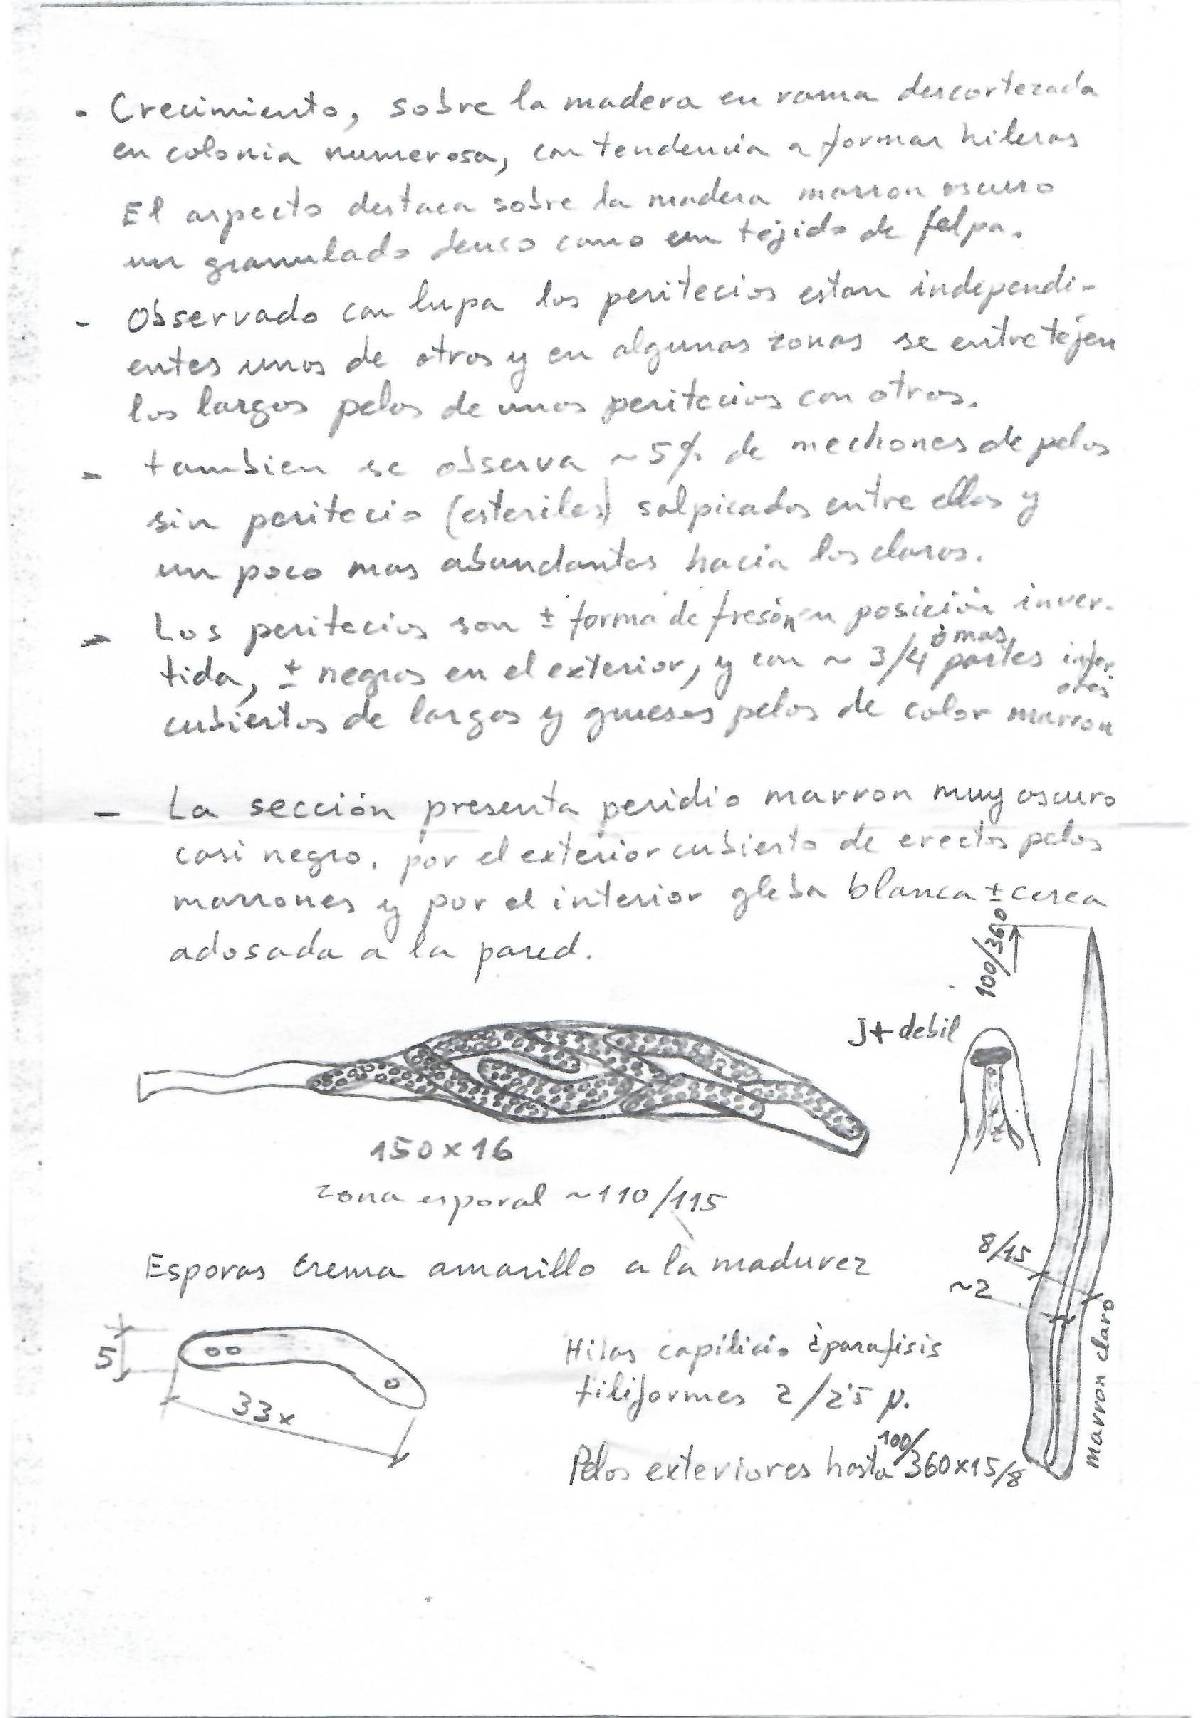 - Crecimiento, sobre la madera en rama descortezada
en colonia numerosa, con tendencia a formar hileras
El aspecto destaca sobre la madera marron oscuro
un granulado denso como un tejido de felpa.
- Observado con lupa los peritecios estan independi-
entes unos de otros y en algunas zonas se entretejen
los largos pelos de unos peritecios con otros.
- tambien se observa ~5% de mechones de pelos
sin peritecio (esteriles) salpicados entre ellos y
un poco mas abundantes hacia los claros.
- Los peritecios son ± forma de fresón en posición inver-
tida, ± negros en el exterior, y con ~ 3/4 ó mas partes inferiores
cubiertos de largos y gruesos pelos de color marron
- La sección presenta peridio marron muy oscuro
casi negro, por el exterior cubierto de erectos pelos
marrones y por el interior gleba blanca ± cerea
adosada a la pared.
100/360
J+ debil
150x16
zona esporal ~110/115
8/15
~2
Esporas crema amarillo a la madurez
5
33x
Hifas capilicio ¿parafisis
filiformes 2/2'5 µ.
Pelos exteriores hasta 100/360x15/8
marron claro